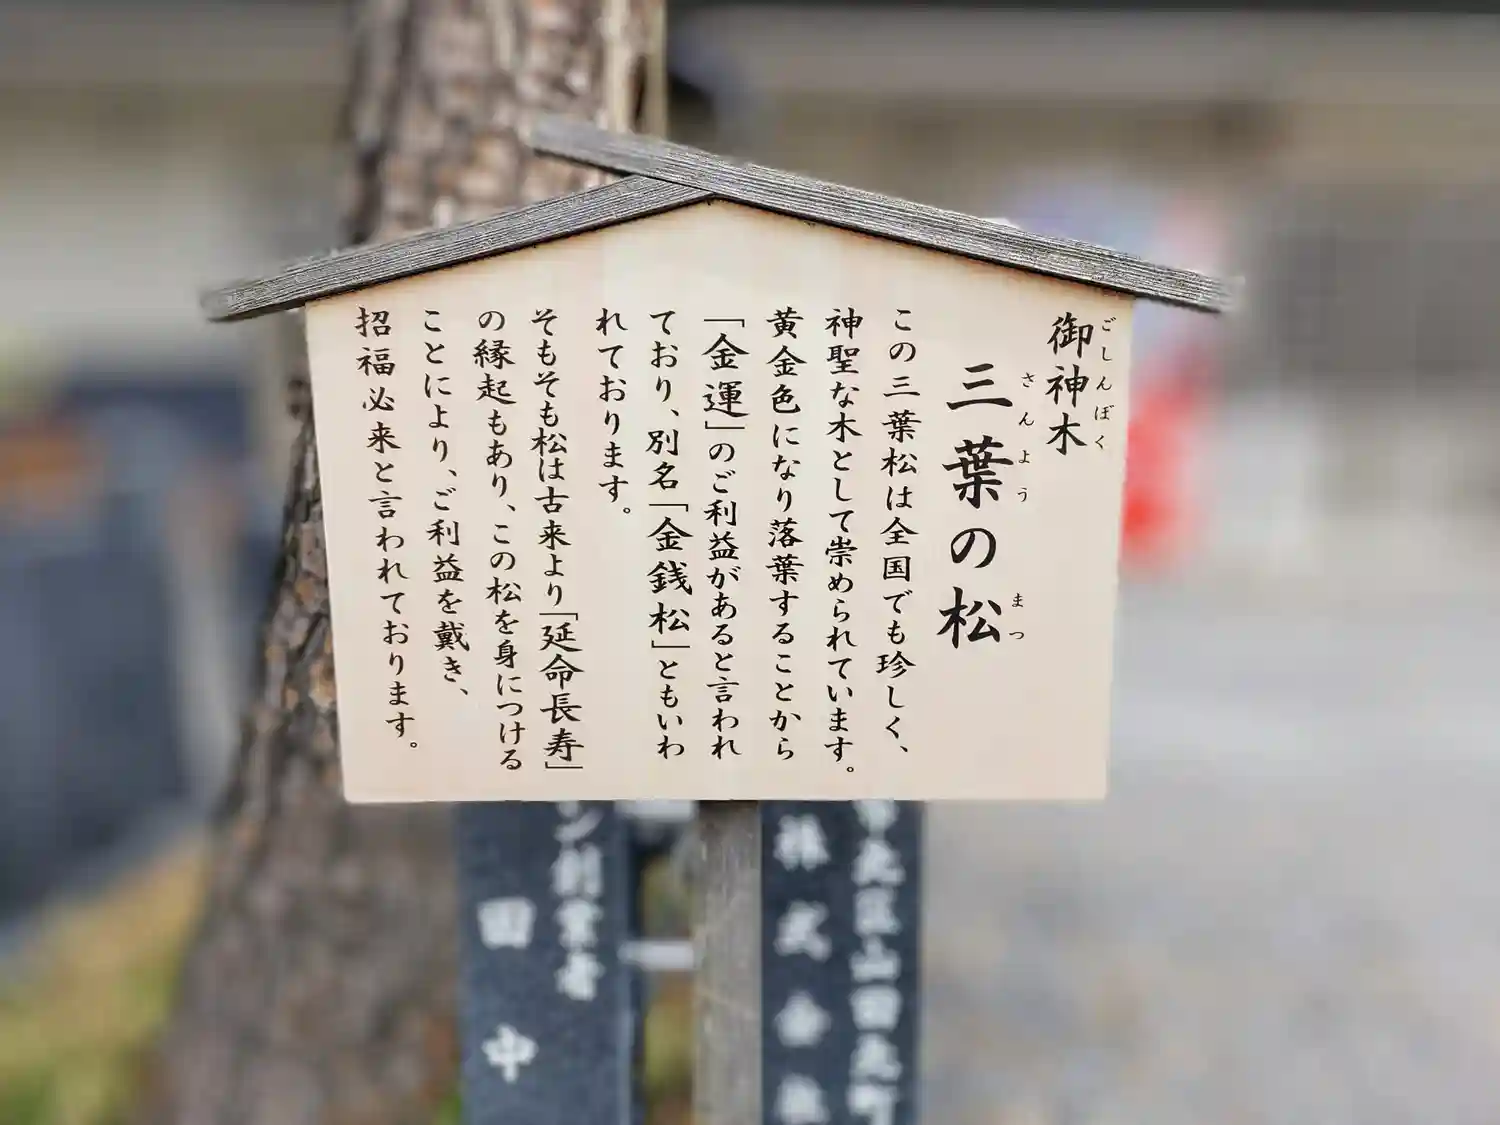 御神木
ごしんぼく
三葉の松
さんよう
まつ
この三葉松は全国でも珍しく、
神聖な木として崇められています。
黄金色になり落葉することから
「金運」のご利益があると言われ
ており、別名「金銭松」ともいわ
れております。
そもそも松は古来より「延命長寿」
の縁起もあり、この松を身につける
ことにより、ご利益を戴き、
招福必来と言われております。
株式会社
ン創業者
田中